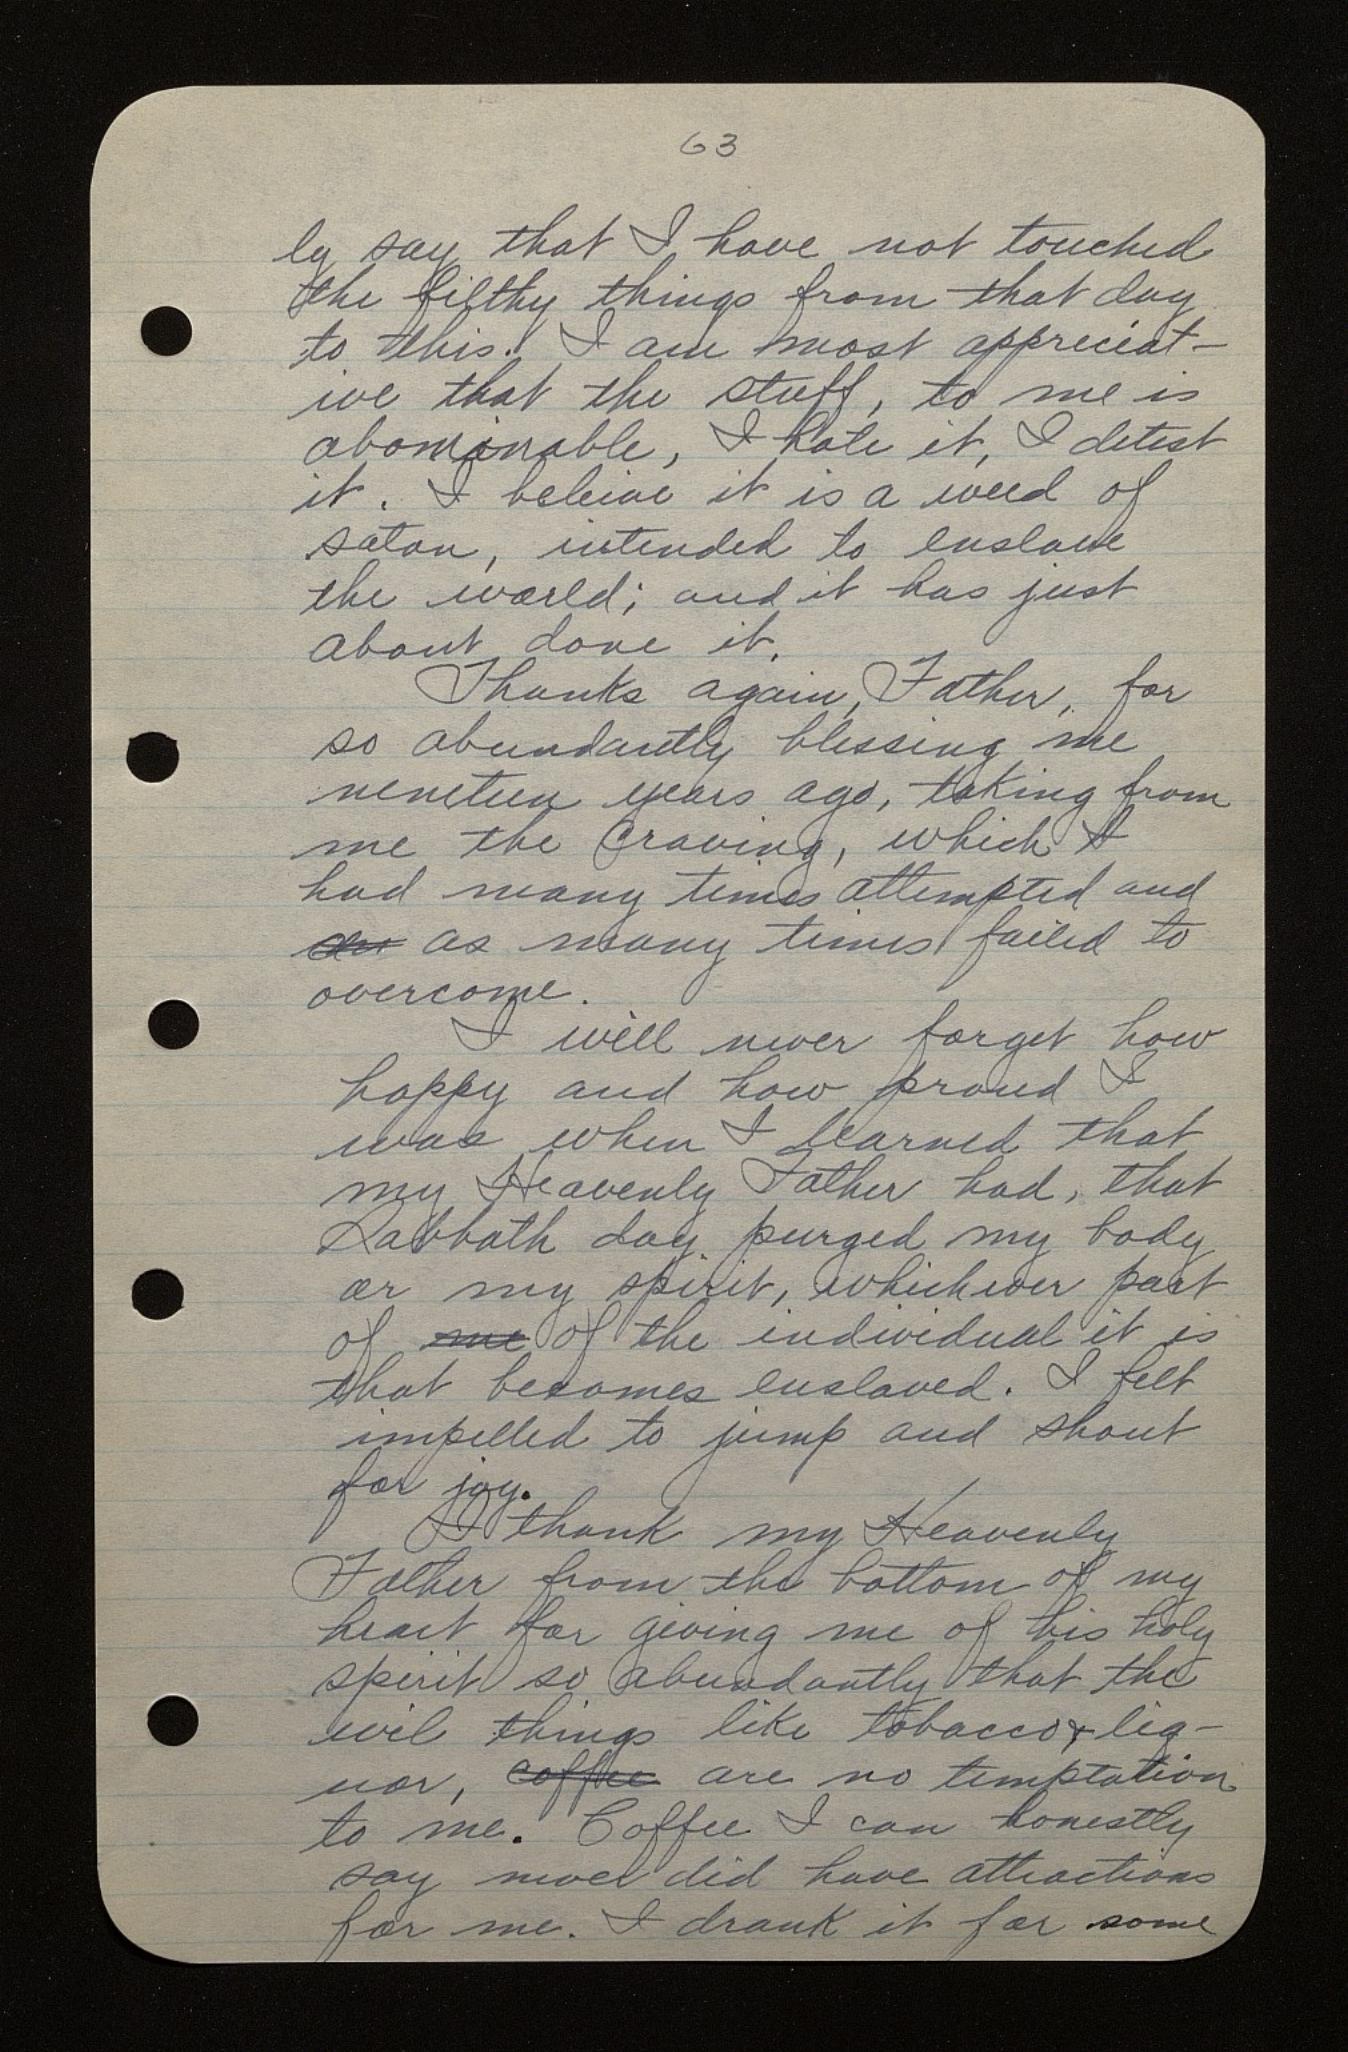 63
ly say that I have not touched
the filthy things from that day
to this. I am most appreciat-
ive that the stuff, to me is
abominable, I hate it, I detest
it. I beleive it is a weed of
satan, intended to enslave
the world; and it has just
about done it.
Thanks again, Father, for
so abundantly blessing me
nineteen years ago, taking from
me the craving, which I
had many times attempted and
as many times failed to
overcome.
I will never forget how
happy and how proud I
was when I learned that
my Heavenly Father had, that
Sabbath day purged my body
or my spirit, whichever part
of me of the individual it is
that becomes enslaved. I felt
impelled to jump and shout
for joy.
I thank my Heavenly
Father from the bottom of my
heart for giving me of his holy
spirit so abundantly that the
evil things like tobacco & liq-
uor, coffee are no temptation
to me. Coffee I can honestly
say never did have attractions
for me. I drank it for some